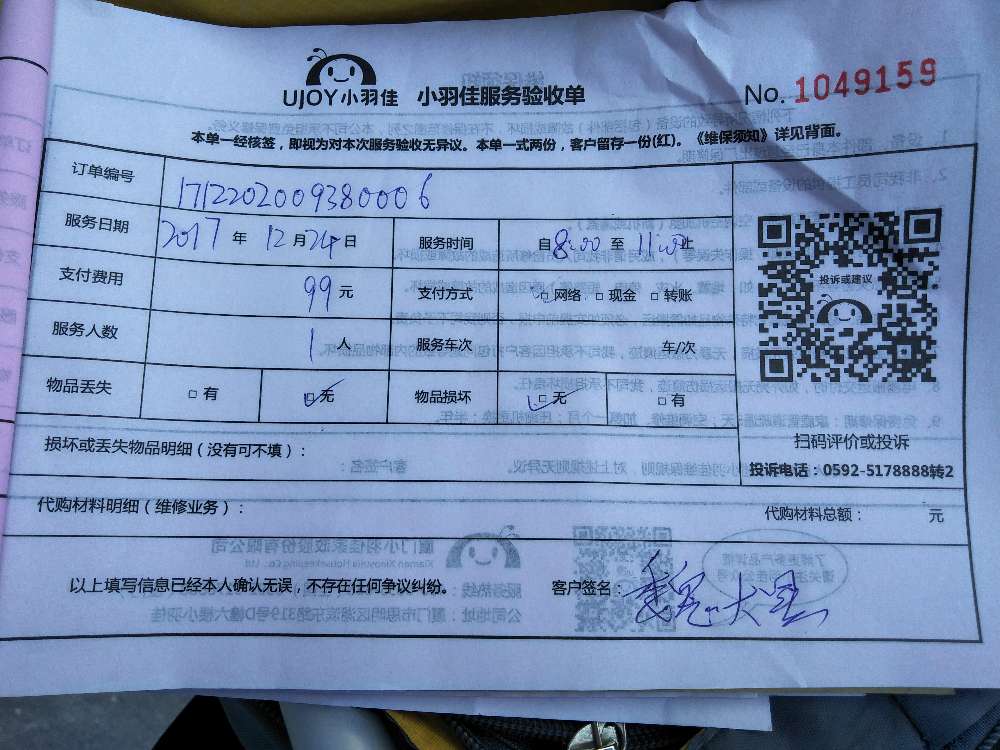 UJOY小羽佳 小羽佳服务验收单 No. 1049159
本单一经核签，即视为对本次服务验收无异议。本单一式两份，客户留存一份(红)。《维保须知》详见背面。
订单编号 171220200938000 6
服务日期 2017 年 12 月 24 日 服务时间 自 8:00 至 11:00 止
支付费用 99 元 支付方式 □网络 □现金 □转账
投诉或建议
服务人数 1 人 服务车次 车/次
物品丢失 □有 □无 物品损坏 □无 □有
扫码评价或投诉
损坏或丢失物品明细（没有可不填）：
投诉电话：0592-5178888转2
代购材料明细（维修业务）： 代购材料总额： 元
以上填写信息已经本人确认无误，不存在任何争议纠纷。 客户签名：